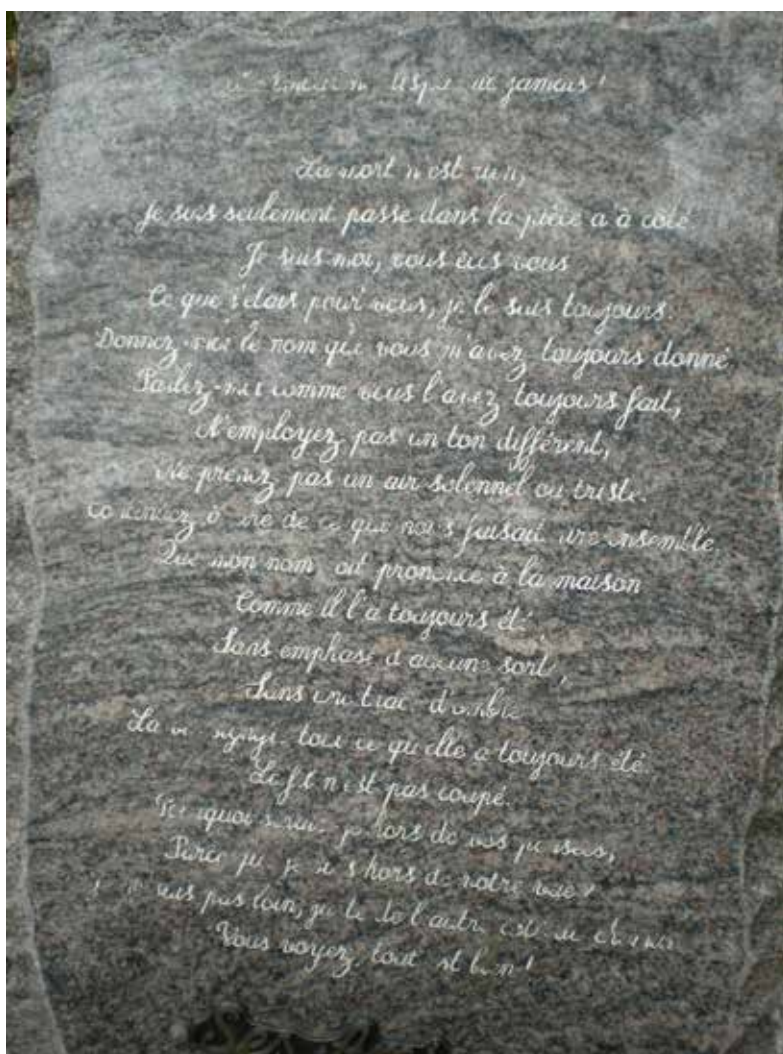 jamais !
La mort n'est rien,
Je suis seulement passé dans la pièce a à coté
Je suis moi, vous êtes vous
Ce que j'étais pour vous, je le suis toujours.
Donnez-moi le nom que vous m'avez toujours donné,
Parlez-moi comme vous l'avez toujours fait,
N'employez pas un ton différent,
Ne prenez pas un air solennel ou triste.
Continuez à rire de ce qui nous faisait rire ensemble.
Que mon nom soit prononcé à la maison
Comme il l'a toujours été,
Sans emphase d'aucune sorte,
Sans une trace d'ombre
La vie tout ce qu'elle a toujours été.
Le fil n'est pas coupé.
Pourquoi serais-je hors de vos pensées,
Parce que je suis hors de votre vue ?
Je ne suis pas loin, de l'autre côté du chemin
Vous voyez, tout est bien !